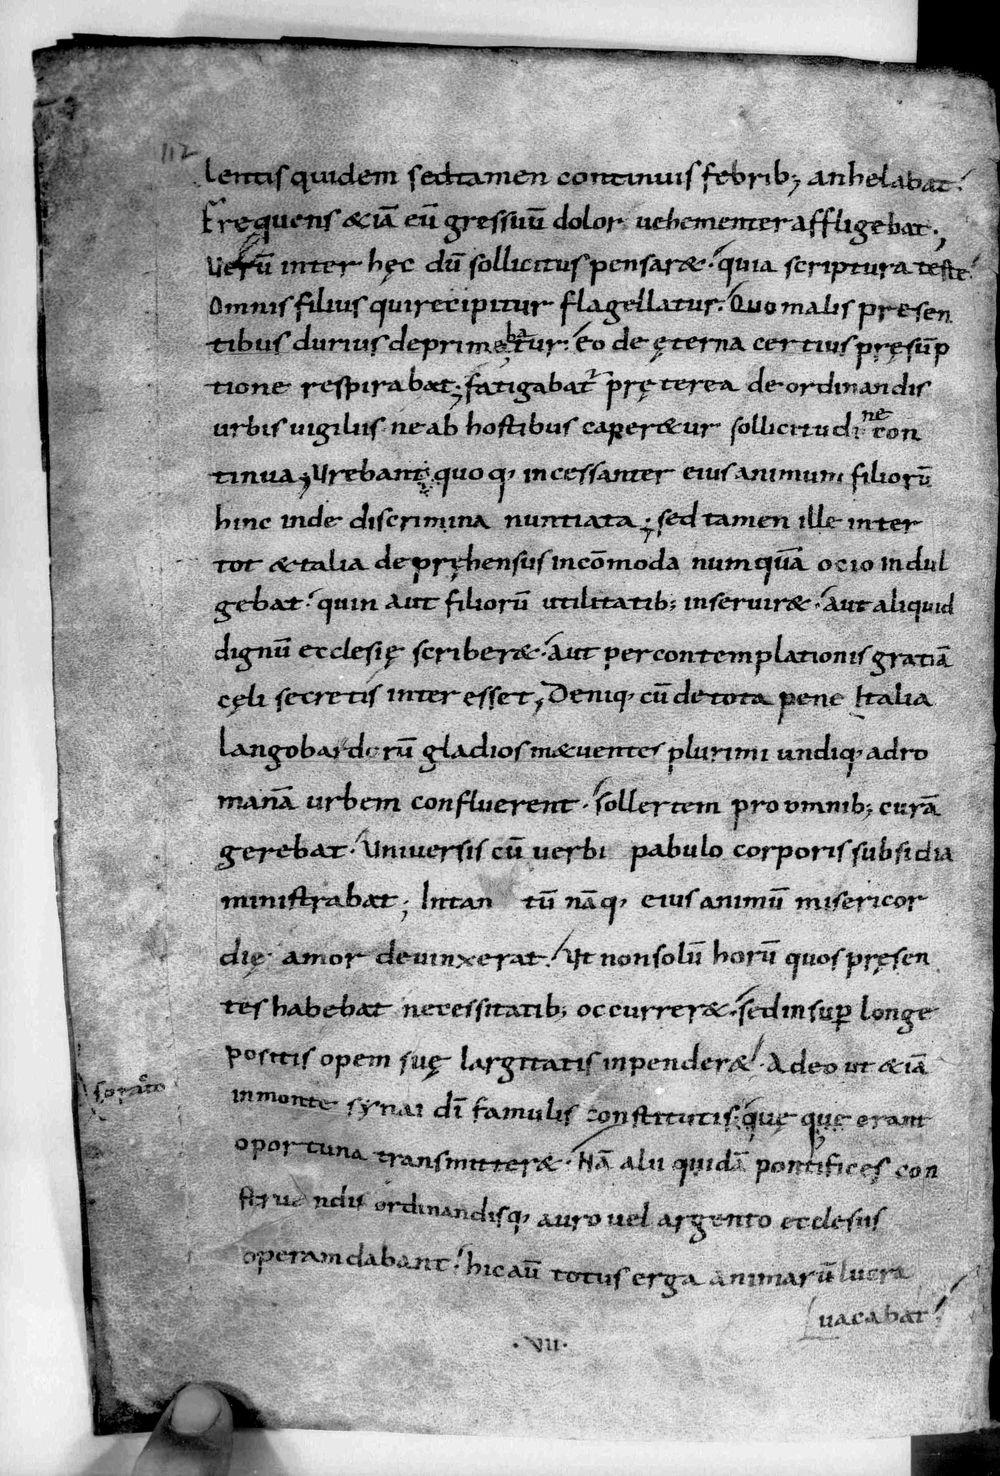 112
lentis quidem sedtamen continuis febrib; anhelabat.
Frequens &iā eū gressuū dolor uehementer affligebat.,
Uerū inter hęc dū sollicitus pensar&. quia scriptura teste.
Omnis filius quirecipitur flagellatur. Quo malis presen
tibus durius deprimebatur. Eo de ęterna certius pręsūp
tione respirabat; fatigabat̄ pręterea de ordinandis
urbis uigiliis ne ab hostibus caper&ur sollicitudine con
tinua; Urebant quoq, incessanter eius animum filiorū
hinc inde discrimina nuntiata; sed tamen ille inter
tot &talia depręhensus incōmoda numquā ocio indul
gebat. quin aut filiorū utilitatib; inseruir&. aut aliquid
dignū ecclesię scriber&. Aut per contemplationis gratiā
cęli secretis inter esset; Deniq, cū de tota pene Italia
langobardorū gladios m&uentes plurimi undiq, ad ro
manā urbem confluerent. sollertem pro omnib; curā
gerebat. Uniuersis cū uerbi pabulo corporis subsidia
ministrabat; Intan tū nāq, eius animū misericor
dię amor deuinxerat. Ut nonsolū horū quos pręsen
tes habebat necessitatib; occurrer&. sed insup̄ longe
positis opem suę largitatis inpender&. Adeo ut &iā
in monte synai dī famulis constitutis. quę quę erant
oportuna transmitter&. Nā alii quidā pontifices con
struendis ordinandisq, auro uel argento ecclesiis
operam dabant. hic aū totus erga animarū lucra
uacabat.
.VII.